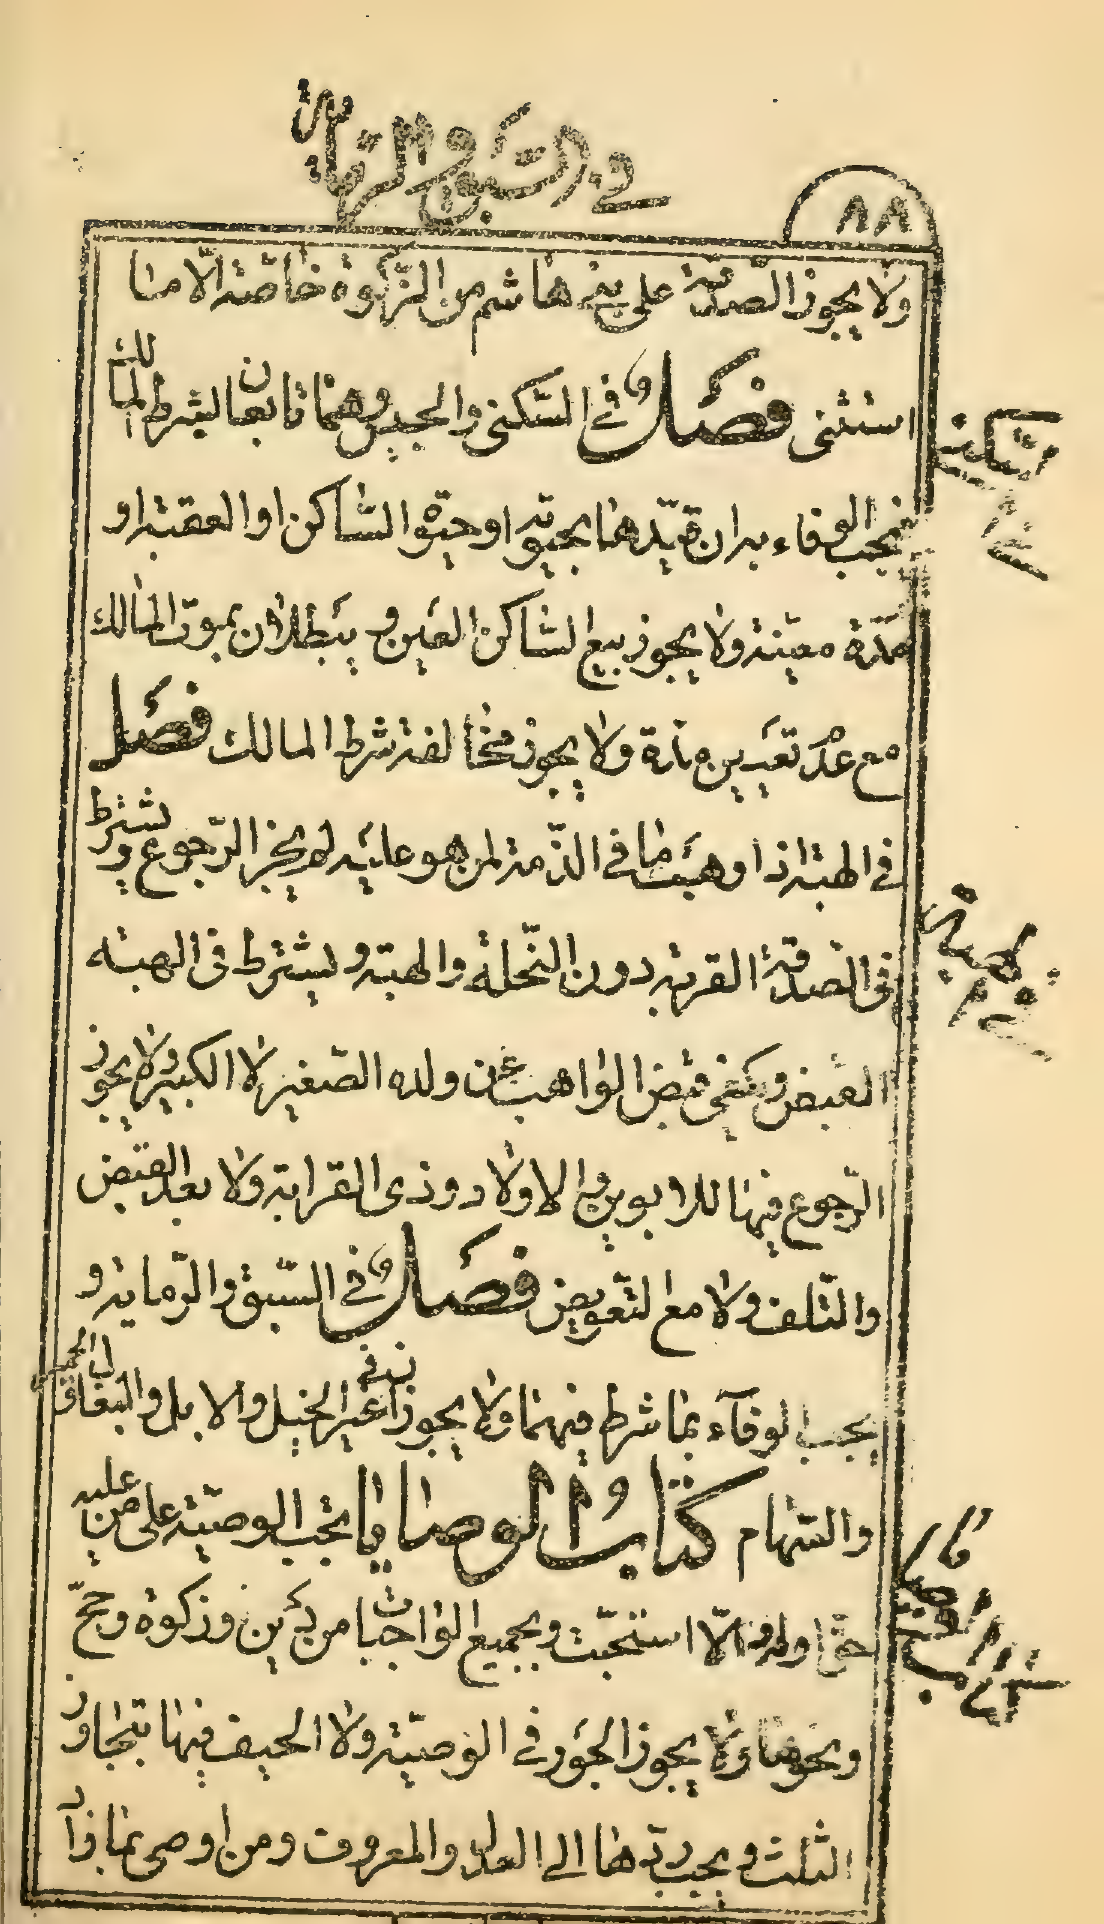 في السبق والرماية
٨٨
ولا يجوز الصدقة على بني هاشم من الزكوة خاصة الا ما
استثنى فصل في السكنى والحبس وهما تابعان لشرط المالك
فيجب الوفاء به ان قيدهما بحيوته او حيوة الساكن او العقبة او
مدة معينة ولا يجوز بيع الساكن العين ويبطلان بموت المالك
مع عدم تعيين مدة ولا يجوز مخالفة شرط المالك فصل
في الهبة اذا وهب ما في الذمة لمن هو عليه لم يجز الرجوع ويشترط
في الصدقة القربة دون النحلة والهبة ويشترط في الهبة
القبض ويكفي قبض الواهب عن ولده الصغير لا الكبير ولا يجوز
الرجوع فيها للابوين والاولاد وذي القرابة ولا بعد القبض
والتلف ولا مع التعويض فصل في السبق والرماية و
يجب الوفاء بما شرط فيهما ولا يجوز ان في غير الخيل والابل والبغال والحمير
والسهام كتاب الوصايا تجب الوصية على من عليه
حق او له والا استحبت وبجميع الواجبات من دين وزكوة وحج
ونحوها ولا يجوز الجور في الوصية ولا الحيف فيها بتجاوز
الثلث ويجب ردها الى العدل والمعروف ومن اوصى بما زاد
السكنى
الهبة
كتاب الوصايا